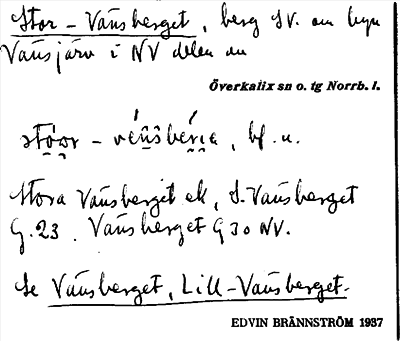 Stor-Vänsberget, berg SV. om byn
Vänsjärv i NV delen av
Överkalix sn o. tg Norrb. l.
bf. u.
Stora Vänsberget ek, S. Vänsberget
G. 23. Vänsberget G 30 NV.
Se Vänsberget, Lill-Vänsberget.
EDVIN BRÄNNSTRÖM 1937